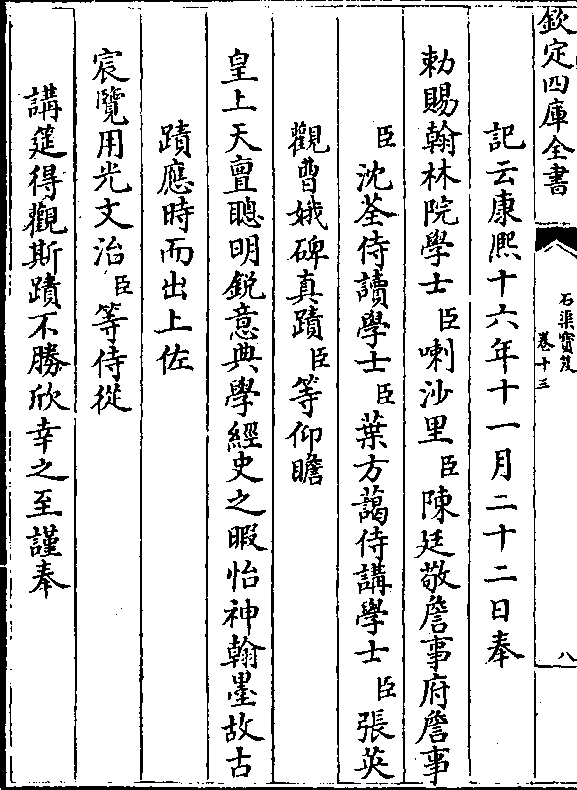 欽定四庫全書
石渠寶笈
卷十三
八
記云康熙十六年十一月二十二日奉
勅賜翰林院學士臣喇沙里臣陳廷敬詹事府詹事
臣沈荃侍讀學士臣葉方藹侍講學士臣張英
觀曹娥碑真蹟臣等仰瞻
皇上天亶聰明銳意典學經史之暇怡神翰墨故古
蹟應時而出上佐
宸覽用光文治臣等侍從
講筵得觀斯蹟不勝欣幸之至謹奉